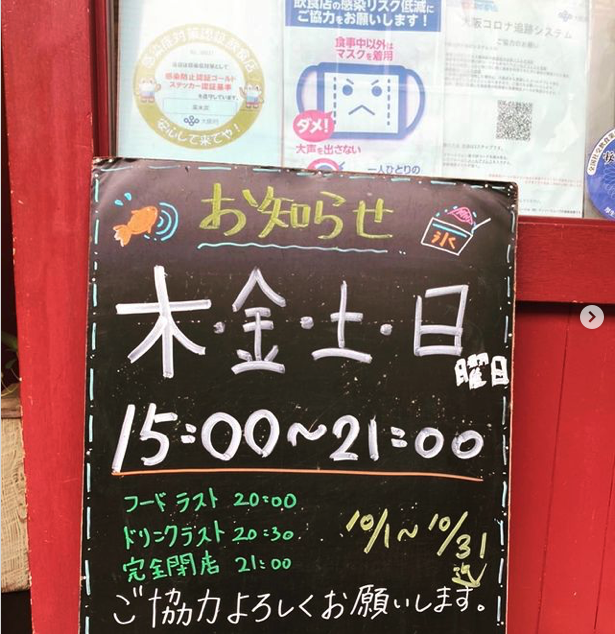 感染症対策認証飲食店
感染防止認証ゴールド
ステッカー認証基準
大阪府
安心して来てや!
飲食店の感染リスク低減に
ご協力をお願いします!
食事中以外は
マスクを着用
ダメ!
大声を出さない
一人ひとりの
大阪コロナ追跡システム
ご協力のお願い
お知らせ
氷
木・金・土・日
曜日
15:00~21:00
フードラスト 20:00
ドリンクラスト 20:30
完全閉店 21:00
10/1~10/31
ご協力よろしくお願いします。